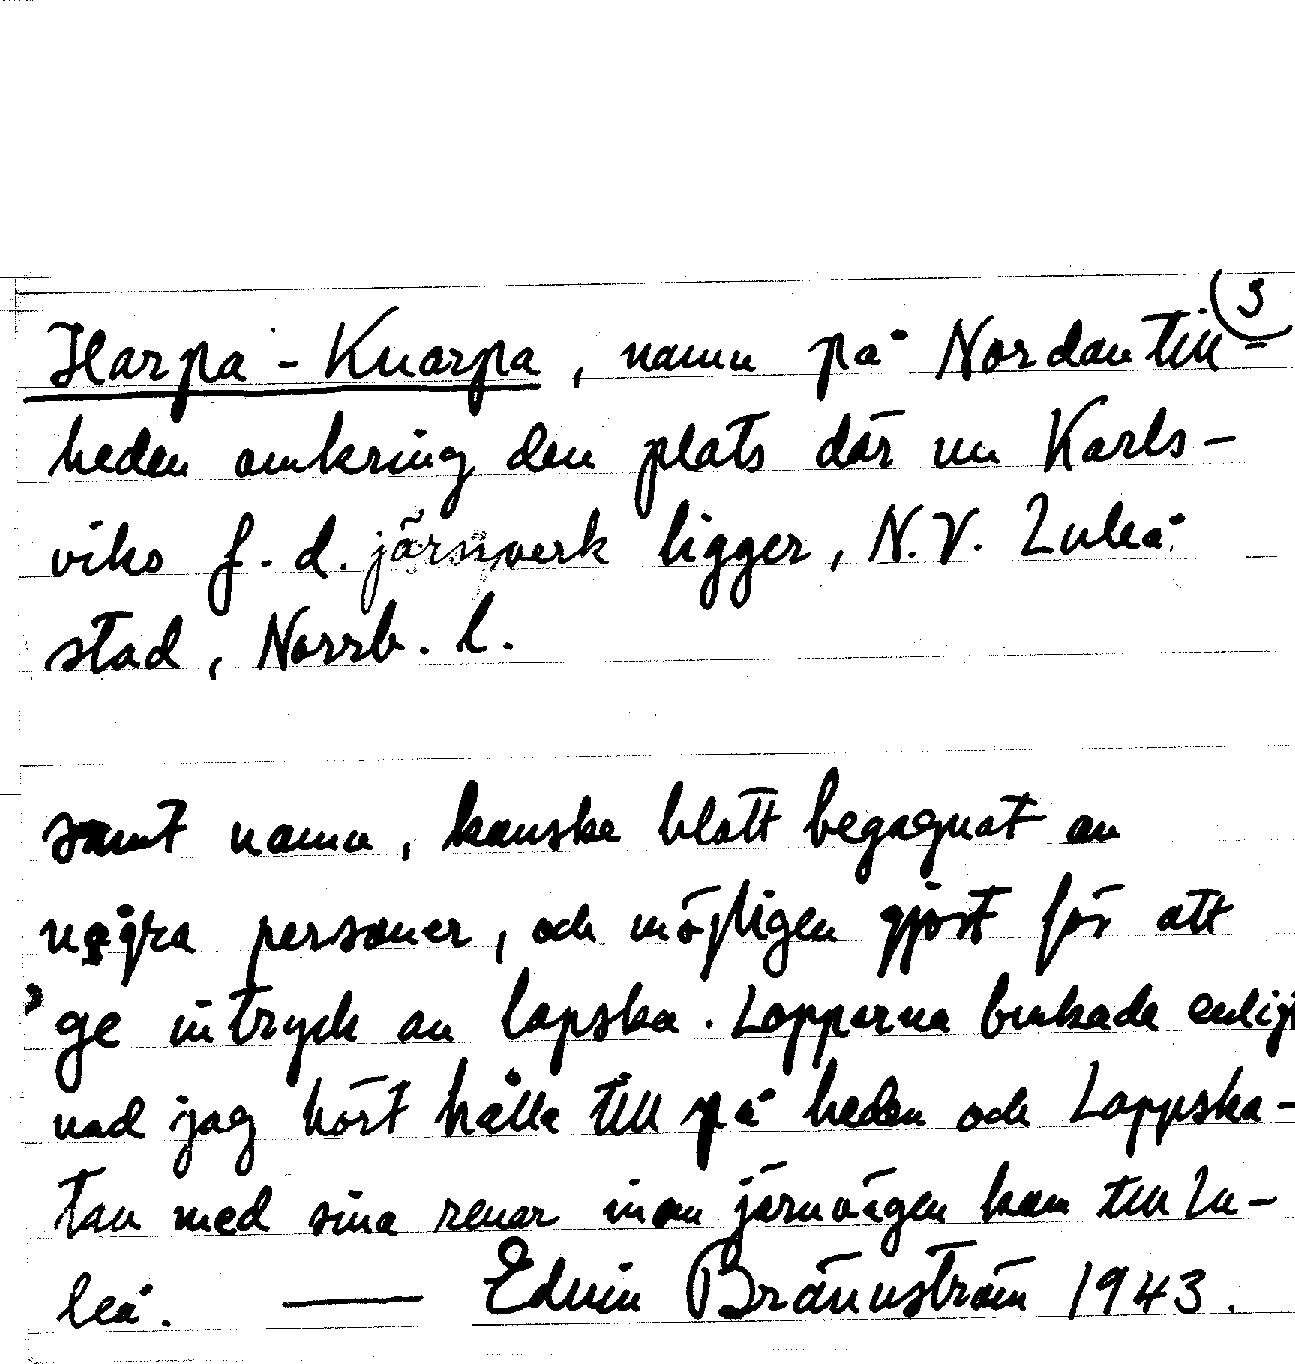 3
Harpa - Knarpa, namn på Nordantill-
heden omkring den plats där nu Karls-
viks f. d. järnverk ligger, N.V. Luleå
stad, Norrb. l.
samt namn, kanske blott begagnat av
några personer, och möjligen gjort för att
ge intryck av lapska. Lapparna brukade enligt
vad jag hört hålla till på heden och Lappska-
tan med sina renar innan järnvägen kom till Lu-
leå. —— Edvin Brännström 1943.